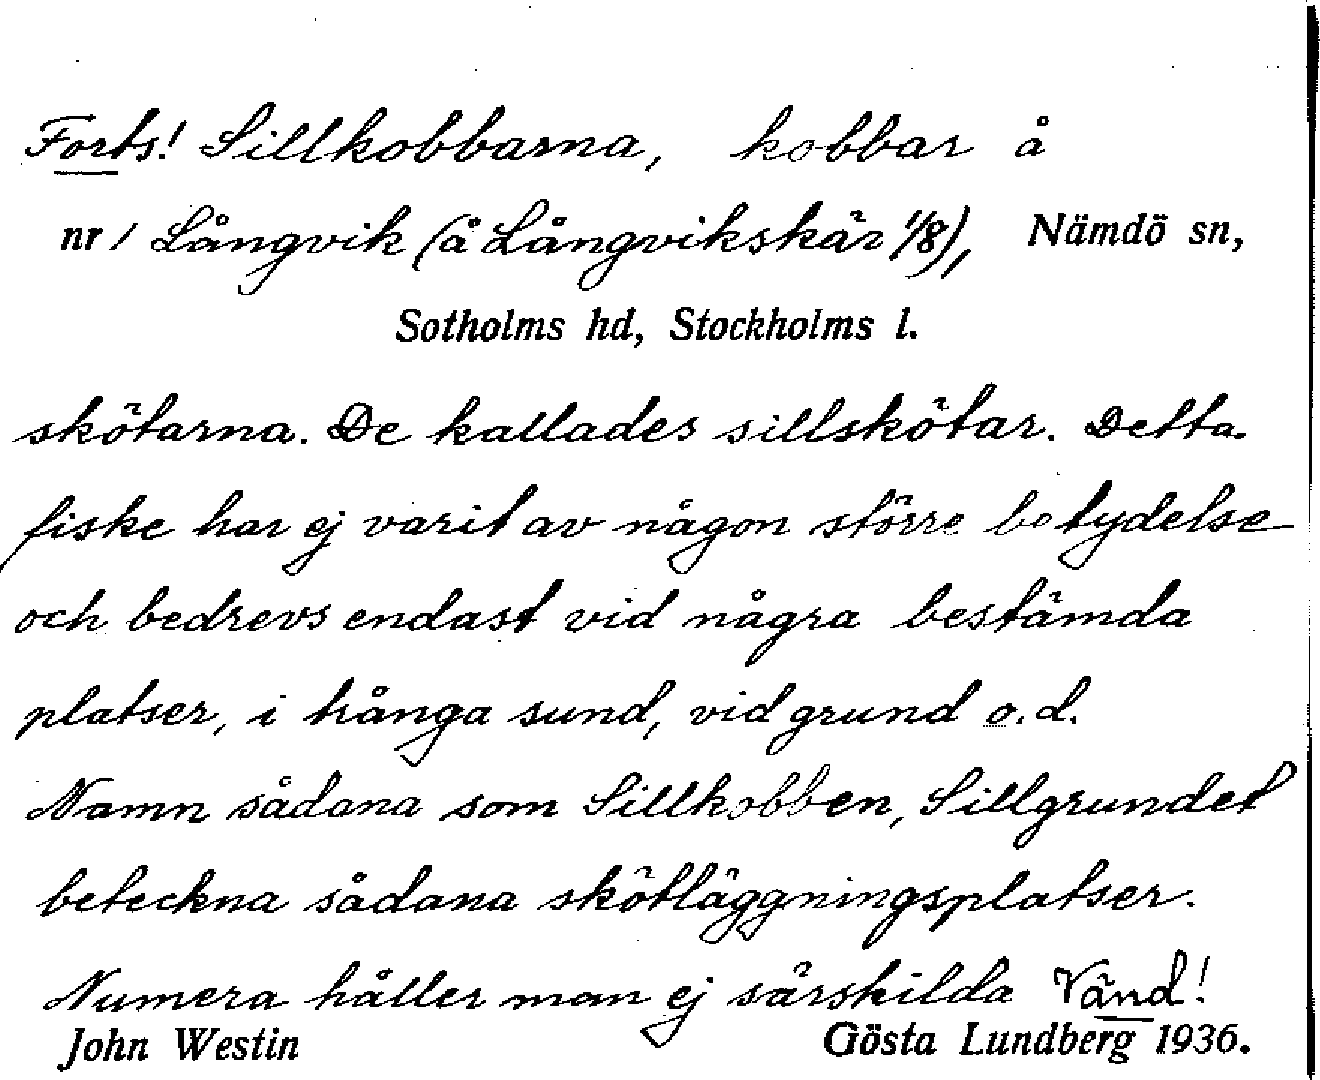 Forts! Sillkobbarna, kobbar å
nr 1 Långvik (å Långvikskär 1/8), Nämdö sn,
Sotholms hd, Stockholms l.
skötarna. De kallades sillskötar. Detta
fiske har ej varit av någon större betydelse
och bedrevs endast vid några bestämda
platser, i trånga sund, vid grund o. d.
Namn sådana som Sillkobben, Sillgrundet
beteckna sådana skötläggningsplatser.
Numera håller man ej särskilda Vänd!
John Westin Gösta Lundberg 1936.